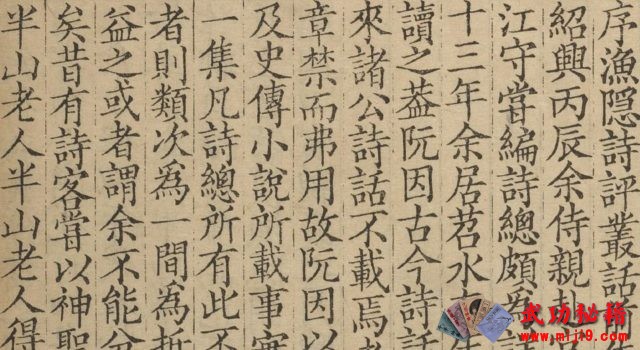 序漁隱詩評叢話
紹興丙辰余侍親
江守嘗編詩總頗為
十三年余居苕水
讀之葢阮因古今詩
來諸公詩話不載焉
章禁而弗用故阮因以
及史傳小說所載事實
一集凡詩總所有此不
者則類次為一間為
益之或者謂余不能分
矣昔有詩客嘗以神聖
半山老人半山老人得
武功秘籍
www.miji9.com